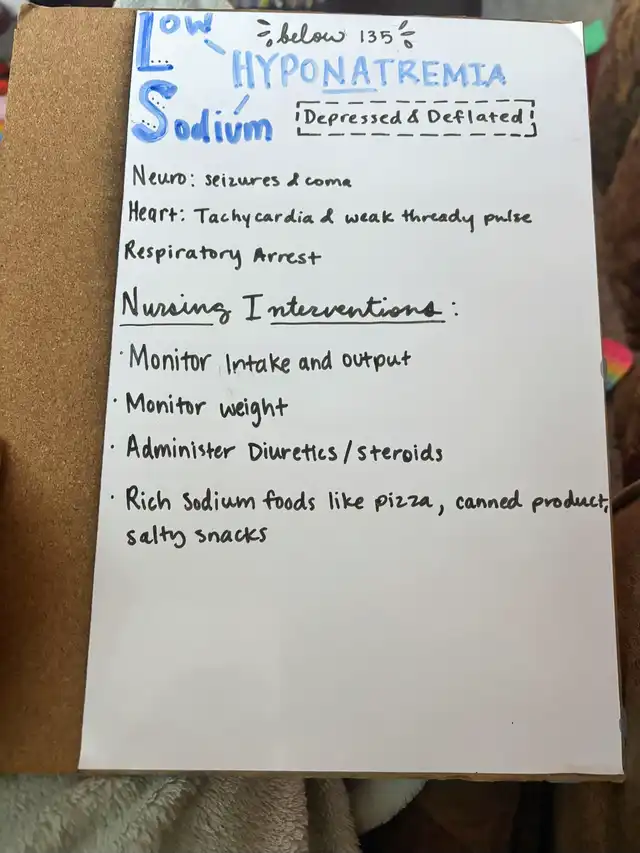 Low
below 135
HYPONATREMIA
Sodium
Depressed & Deflated
Neuro: seizures & coma
Heart: Tachycardia & weak thready pulse
Respiratory Arrest
Nursing Interventions:
· Monitor Intake and output
· Monitor weight
· Administer Diuretics/steroids
· Rich Sodium foods like pizza, canned product,
salty snacks